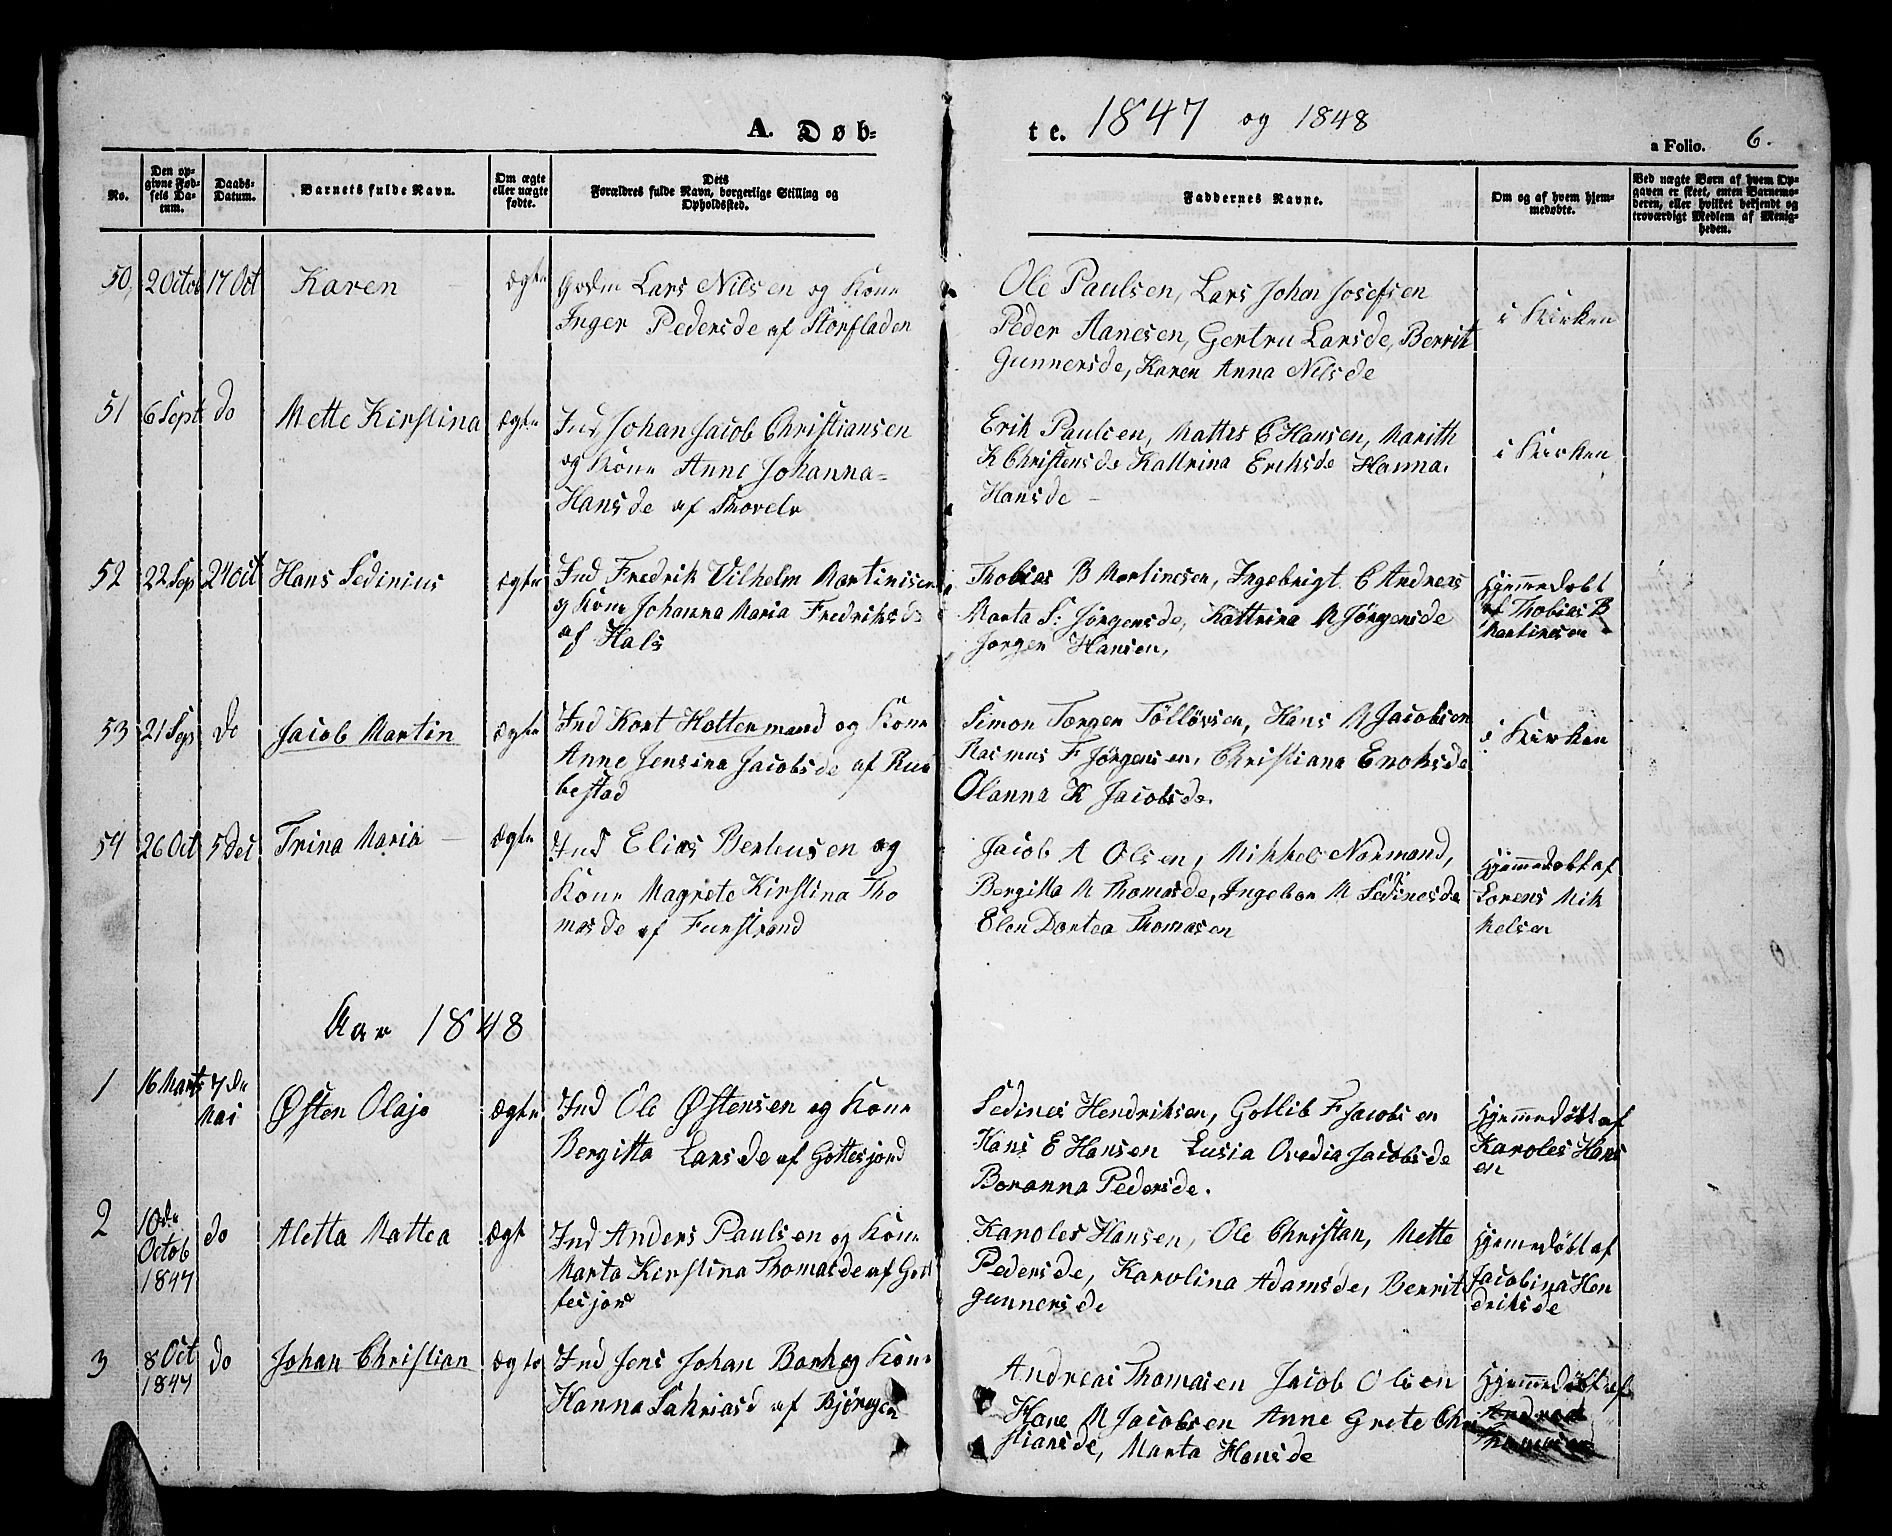 A. Døb-
te. 1847 og 1848
a Folio. 6.
No.
Den op-
givne Fød-
sels Da-
tum.
Daabs-
Datum.
Barnets fulde Navn.
Om ægte
eller uægte
fødte.
Dets
Forældres fulde Navn, borgerlige Stilling og
Opholdssted.
Faddernes Navne.
Om og af hvem hjem-
medøbte.
Ved uægte Børn af hvem Op-
gaven er skeet, enten Barnemo-
deren, eller hvilket bekjendt og
troværdigt Medlem af Menig-
heden.
50, 2 Octob 17 Oct Karen ægte
Lars Nilsen og Kone
Inger Pedersde af Storfladen
Ole Paulsen, Lars Johan Josefsen
Peder Aanesen, Gertru Larsde, Berrit
Gunnersde, Karen Anna Nilsde
i Kirken
51 6 Sept do Mette Kirstina ægte
Ind Johan Jacob Christiansen
og Kone Anne Johanna
Hansde af
Erik Paulsen, Mattes C Hansen, Marith
K Christensde Kattrina Eriksde Hanna
Hansde
i Kirken
52 22 Sep 24 Oct Hans Sedinius ægte
Ind Fredrik Vilhelm Martinisen
og Kone Johanna Maria Fredriksde
af Hals
Thobias B Martinesen, Ingebrigt C Andreas
Marta S: Jørgensde, Kattrina M Jørgensde
Jorgen Hansen,
Hjemmedøbt
af Thobias B
Martinesen
53 21 Sep do Jacob Martin ægte
Ind Kort Hattermand og Kone
Anne Jensina Jacobsde af Rub
bestad
Simon Torger Tölløvsen, Hans M Jacobsen
Rasmus F Jørgensen, Christiana Enoksde
Olanna K Jacobsde.
i Kirken
54 26 Oct 5 Dec Trina Maria ægte
Ind Elias Berteusen og
Kone Magrete Kirstina Tho
masde af Furstrand
Jacob A Olsen, Mikkel Normand,
Bergitta M Thomasde, Ingebor M Sedinesde
Elen Dortea Thomasen
Hjemmedøbt af
Lorens Mik
kelsen
Aar 1848
1 16 Marts 7de
Mai
Østen Olaje ægte
Ind Ole Østensen og Kone
Bergitta Larsde af Gottesjord
Sedines Hendriksen, Gotlib F Jacobsen
Hans E Hansen Lusia Ovedia Jacobsde
Boranna Pedersde.
Hjemmedøbt af
Karoles Hans
en
2 10de
Octob
1847
do Aletta Mattea ægt
Ind Anders Paulsen og Kone
Marta Kirstina Thomasde af Got
tesjord
Karoles Hansen, Ole Christan, Mette
Pedersde, Karolina Adamsde, Berrit
Gunnersde
Hjemmedøbt af
Jacobina Hen
driksde
3 8 Oct
1847
do Johan Christian ægte
Ind Jens Johan Bark og Kone
Hanna Sakriasd af Bjørgen
Andreas Thomasen Jacob Olsen
Hans M Jacobsen Anne Grete Chri
stiansde, Marta Hansde
Hjemmedøbt af
Andreas
Thomasen